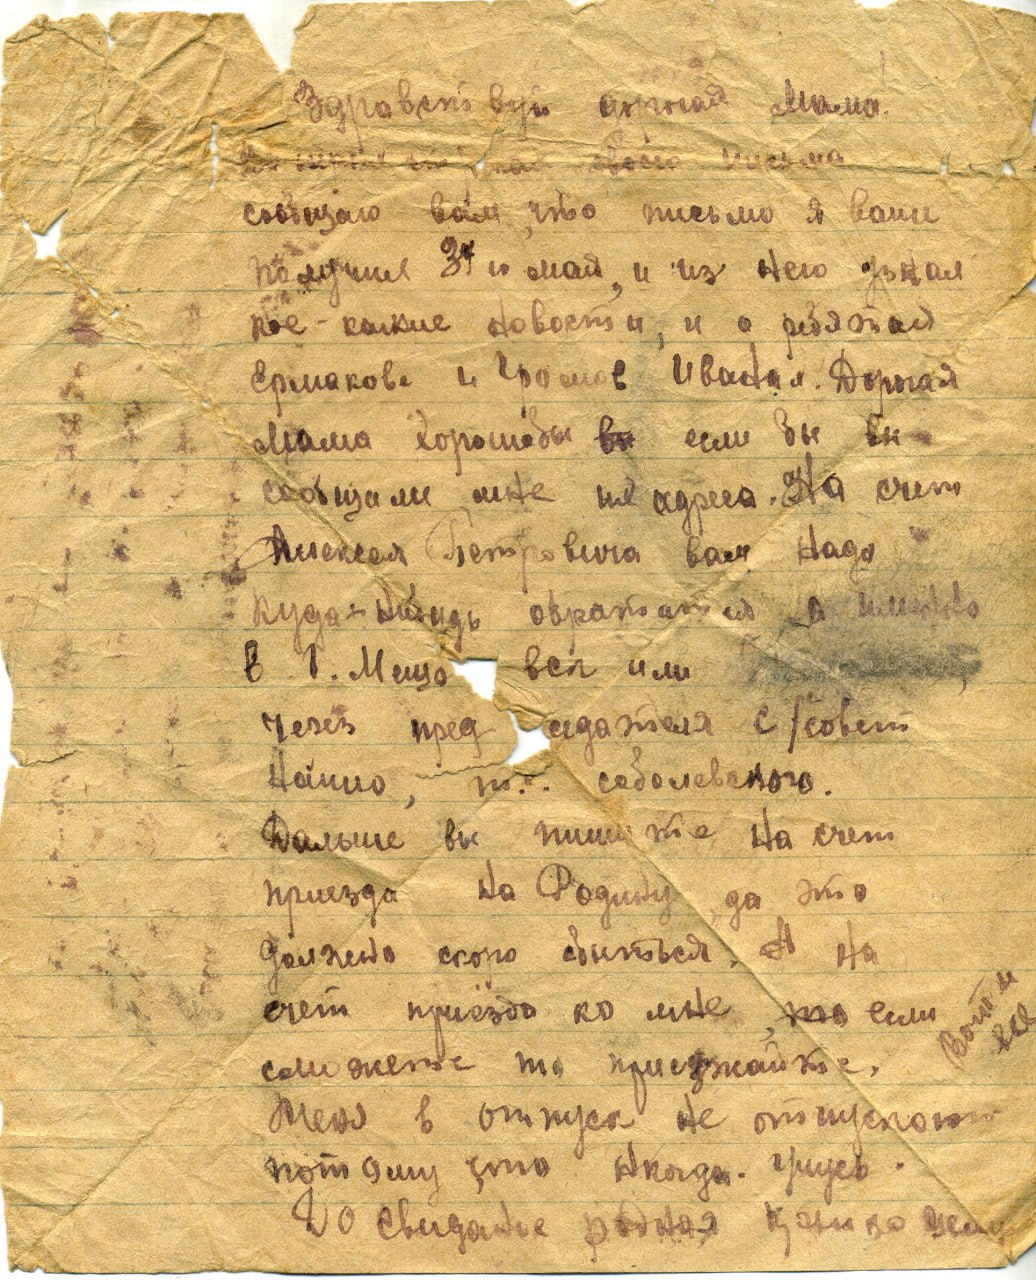 Здравствуй дорогая Мама.
своего письма
сообщаю вам, что письмо я ваше
получил 31 го мая, и из него узнал
кое-какие новости, и о ребятах
Ермакове и Громов Иван. Дорогая
Мама хорошобы если вы
сообщали мне их адреса. На счет
Алексея Петровича вам надо
Куда-нибудь обратится а именно
в Г. Мещовск или
Через председателя с/совет
нашо, т. соболевского.
Дальше вы пишите на счет
приезда на Родину, да это
должно скоро сбыться. А на
счет приезда ко мне, то если
сможете то приезжайте.
Меня в отпуск не отпускают
потому что некогда. Учусь.
До свиданье родная целую
Вот и
все